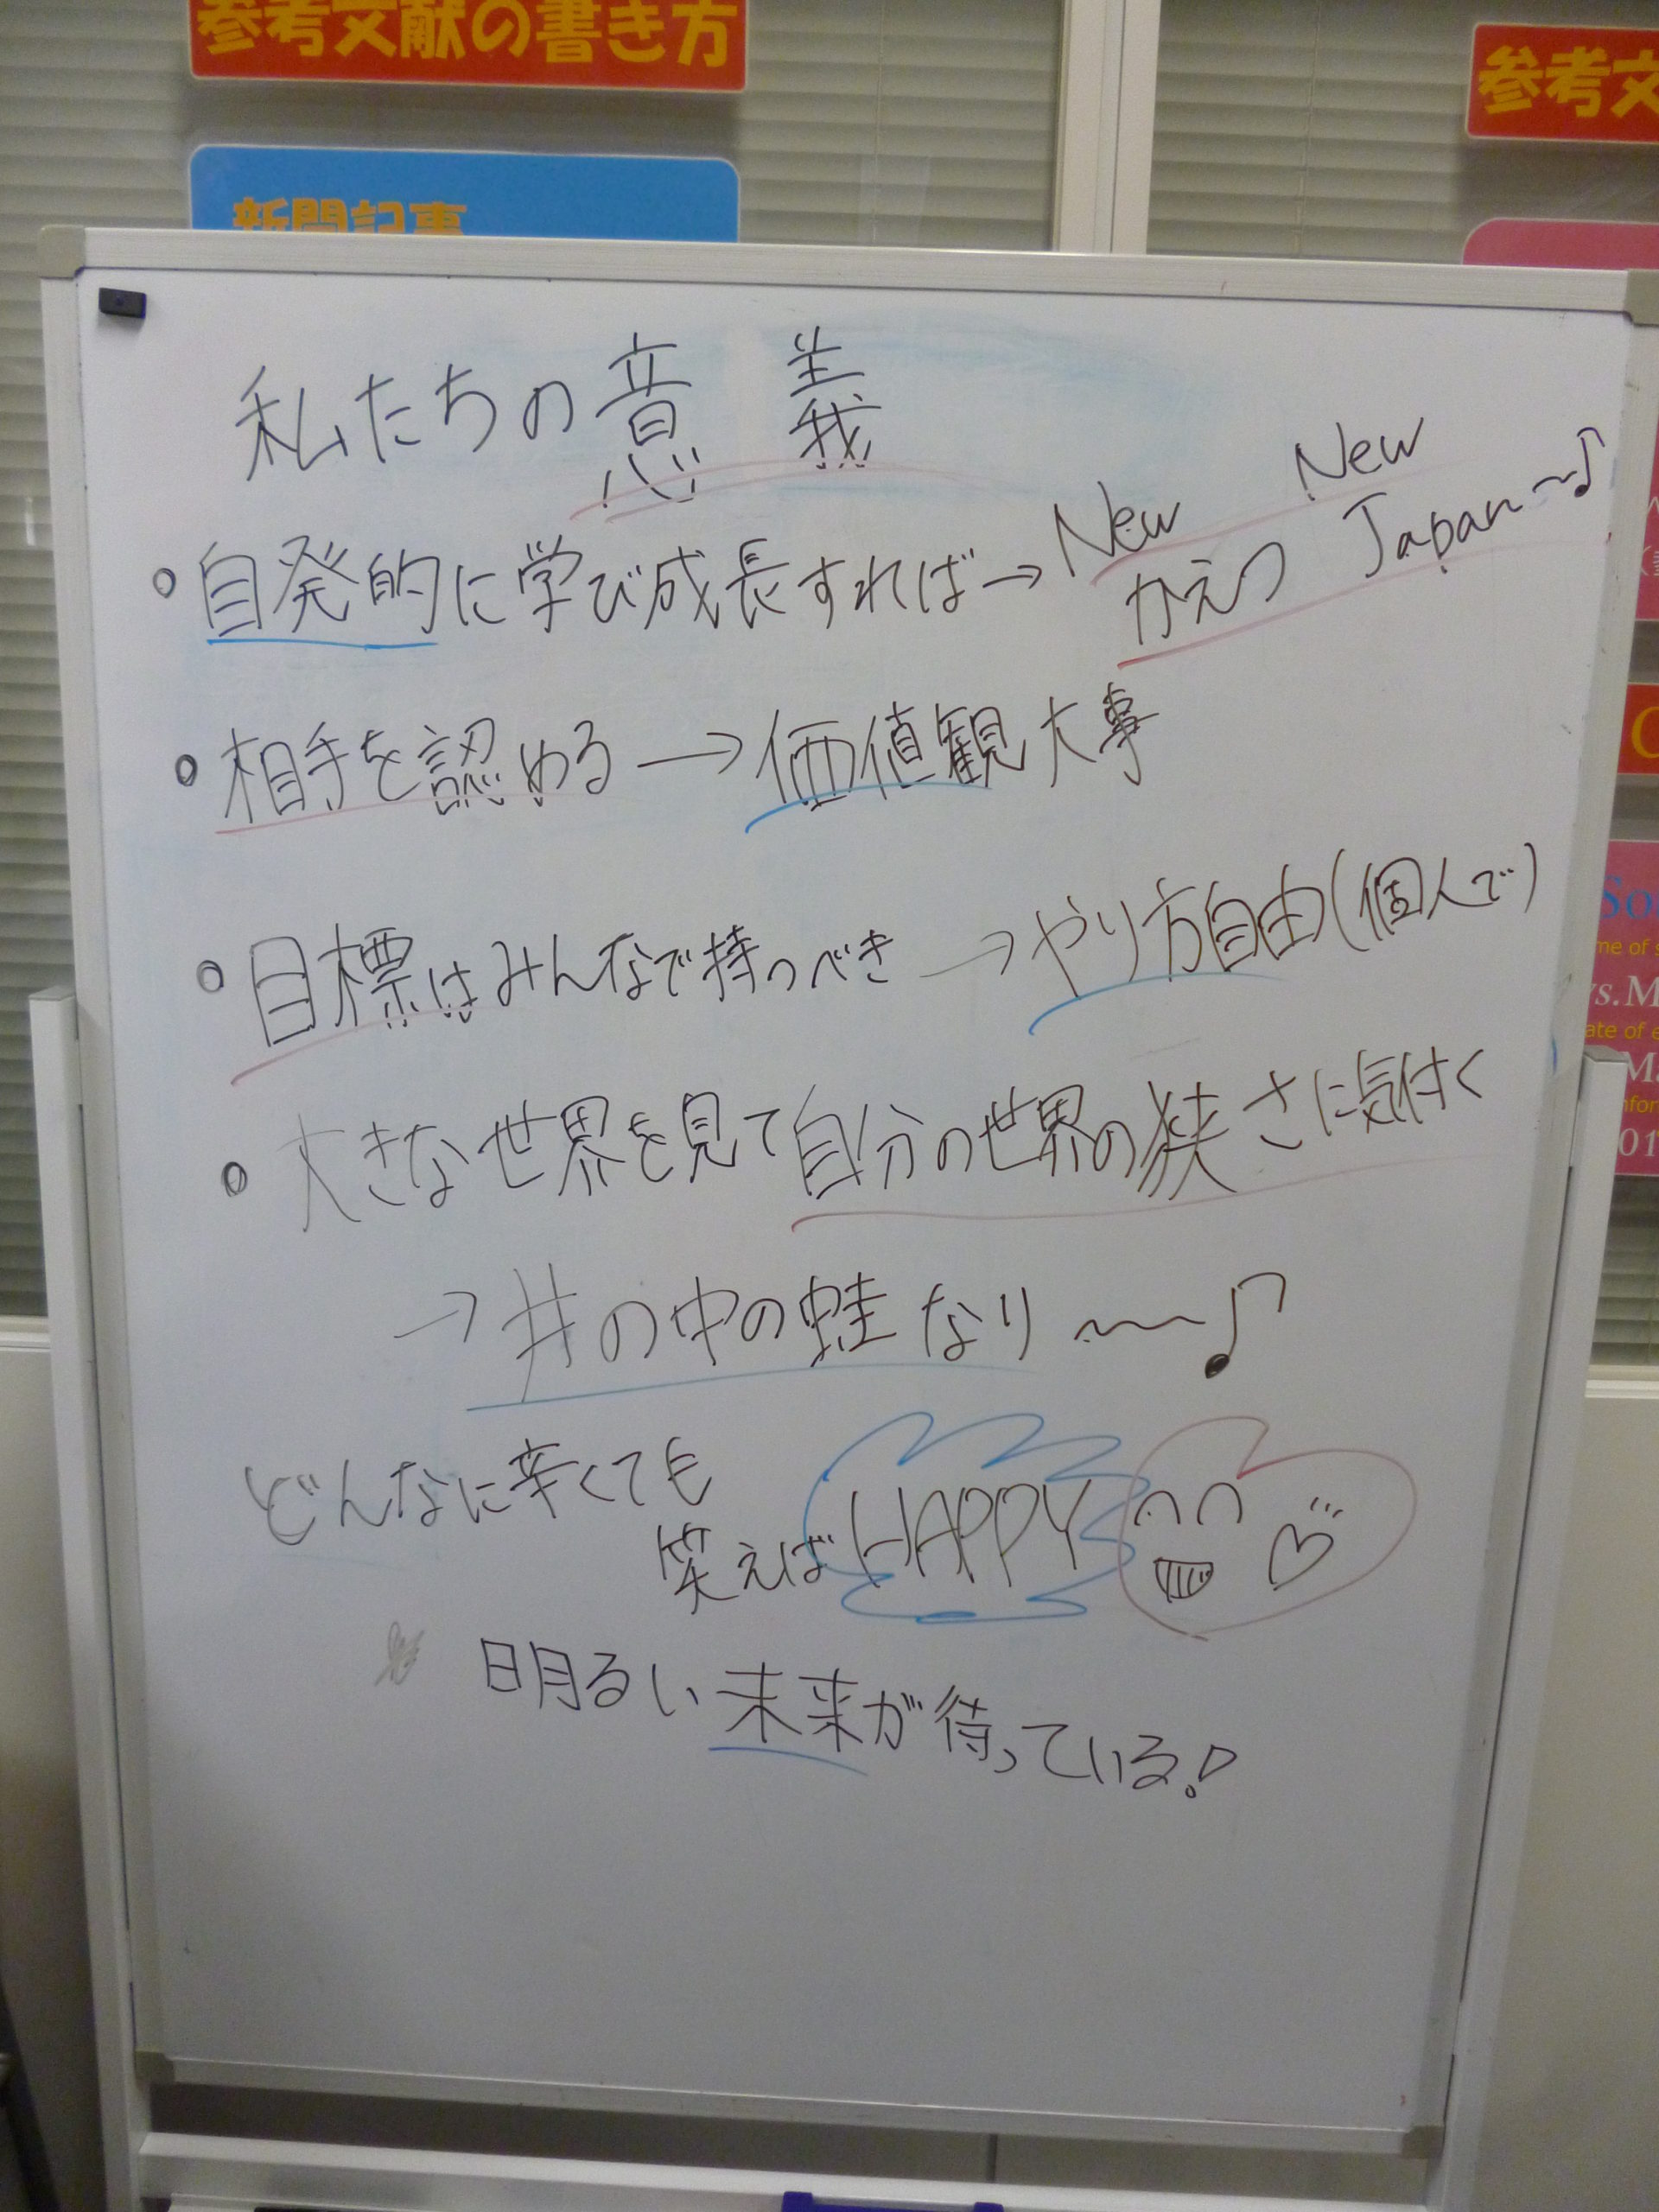 参考文献の書き方
参考文
新聞記事
私たちの意義
• 自発的に学び成長すれば→ New かえつ New Japan~♪
• 相手を認める → 価値観大事
• 目標はみんなで持つべき → やり方自由(個人で)
• 大きな世界を見て自分の世界の狭さに気付く
→ 井の中の蛙なり~♪
どんなに辛くても
笑えばHAPPY
明るい未来が待っている!